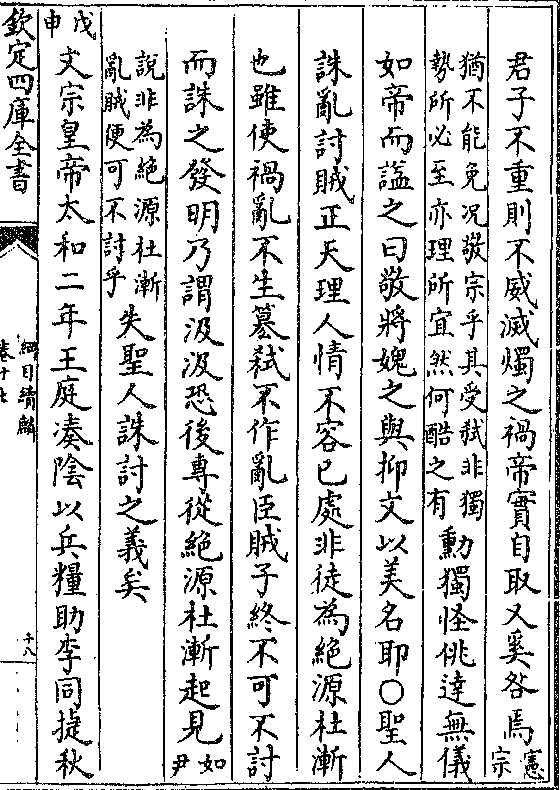 君子不重則不威滅燭之禍帝實自取又奚咎焉憲宗
猶不能免况敬宗乎其受弑非獨
勢所必至亦理所宜然何酷之有
勳獨怪佻達無儀
如帝而諡之曰敬將媿之與抑文以美名耶○聖人
誅亂討賊正天理人情不容已處非徒為絕源杜漸
也雖使禍亂不生篡弑不作亂臣賊子終不可不討
而誅之發明乃謂汲汲恐後專從絕源杜漸起見如尹
說非為絕源杜漸
亂賊便可不討乎
失聖人誅討之義矣
戊申
文宗皇帝太和二年王庭凑陰以兵糧助李同捷秋
欽定四庫全書
綱目續麟
卷十七
十八